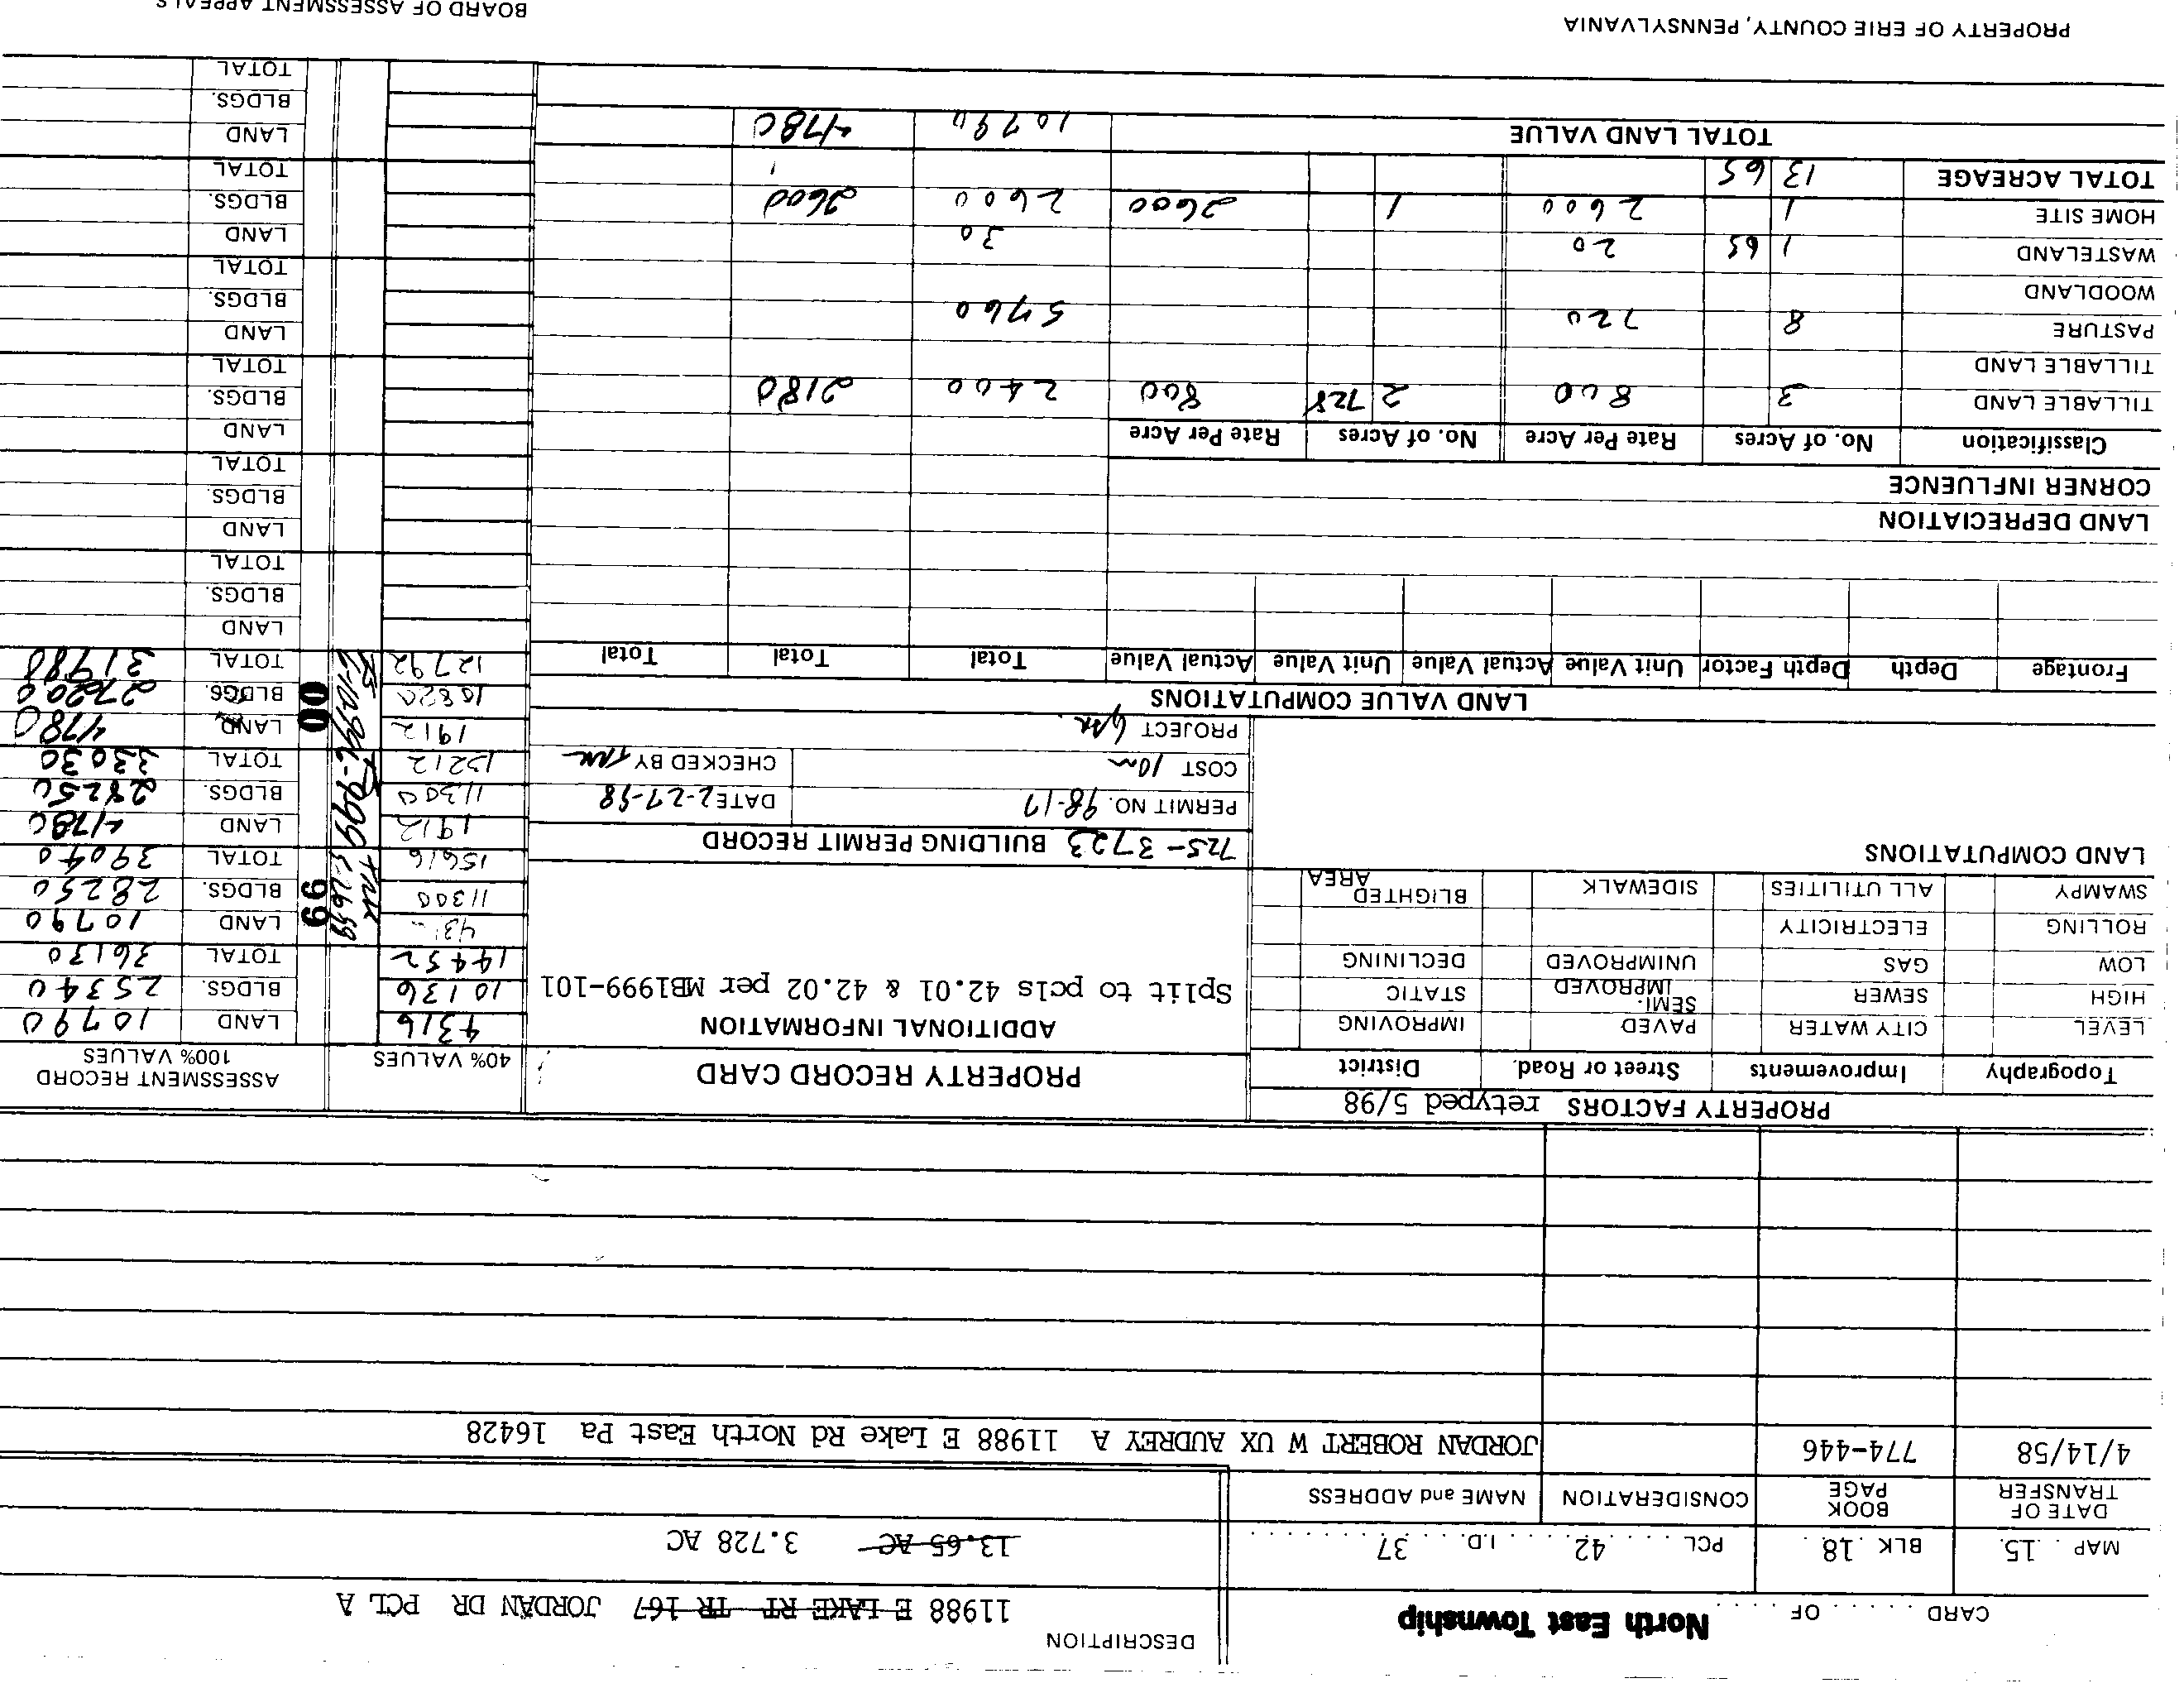 CARD . . . . . . OF . . . . . . North East Township
DESCRIPTION
11988 E LAKE RT TR 167 JORDAN DR PCL A
MAP . . 15. BLK . 18. PCL . . . . . 42. . . . . I.D. . . . . 37
13.65 AC 3.728 AC
DATE OF TRANSFER BOOK PAGE CONSIDERATION NAME and ADDRESS
4/14/58 774-446 JORDAN ROBERT W UX AUDREY A 11988 E Lake Rd North East Pa 16428
PROPERTY FACTORS retyped 5/98
Topography Improvements Street or Road. District
LEVEL CITY WATER PAVED IMPROVING
HIGH SEWER SEMI-IMPROVED STATIC
LOW GAS UNIMPROVED DECLINING
ROLLING ELECTRICITY
SWAMPY ALL UTILITIES SIDEWALK BLIGHTED AREA
LAND COMPUTATIONS
PROPERTY RECORD CARD
ADDITIONAL INFORMATION
Split to pcls 42.01 & 42.02 per MB1999-101
725-3723 BUILDING PERMIT RECORD
PERMIT NO. 98-17 DATE 2-27-98
COST 10m CHECKED BY
PROJECT
40% VALUES ASSESSMENT RECORD 100% VALUES
4316 LAND 10790
10136 BLDGS. 25340
14452 TOTAL 36130
99
LAND 10790
11300 BLDGS. 28250
15616 TOTAL 39040
1912 LAND 4780
11300 BLDGS. 28250
TOTAL 33030
00
1912 LAND 4780
BLDGS. 27200
12792 TOTAL 31980
LAND
BLDGS.
TOTAL
LAND
BLDGS.
TOTAL
LAND
BLDGS.
TOTAL
LAND
BLDGS.
TOTAL
LAND
BLDGS.
TOTAL
LAND
BLDGS.
TOTAL
LAND VALUE COMPUTATIONS
Frontage Depth Depth Factor Unit Value Actual Value Unit Value Actual Value Total Total Total
LAND DEPRECIATION
CORNER INFLUENCE
Classification No. of Acres Rate Per Acre No. of Acres Rate Per Acre
TILLABLE LAND 3 800 2 728 800 2400 2180
TILLABLE LAND
PASTURE 8 720 5760
WOODLAND
WASTELAND 1 65 20 30
HOME SITE 1 2600 1 2600 2600 2600
TOTAL ACREAGE 13 65
TOTAL LAND VALUE 10790 4780
PROPERTY OF ERIE COUNTY, PENNSYLVANIA
BOARD OF ASSESSMENT APPEALS